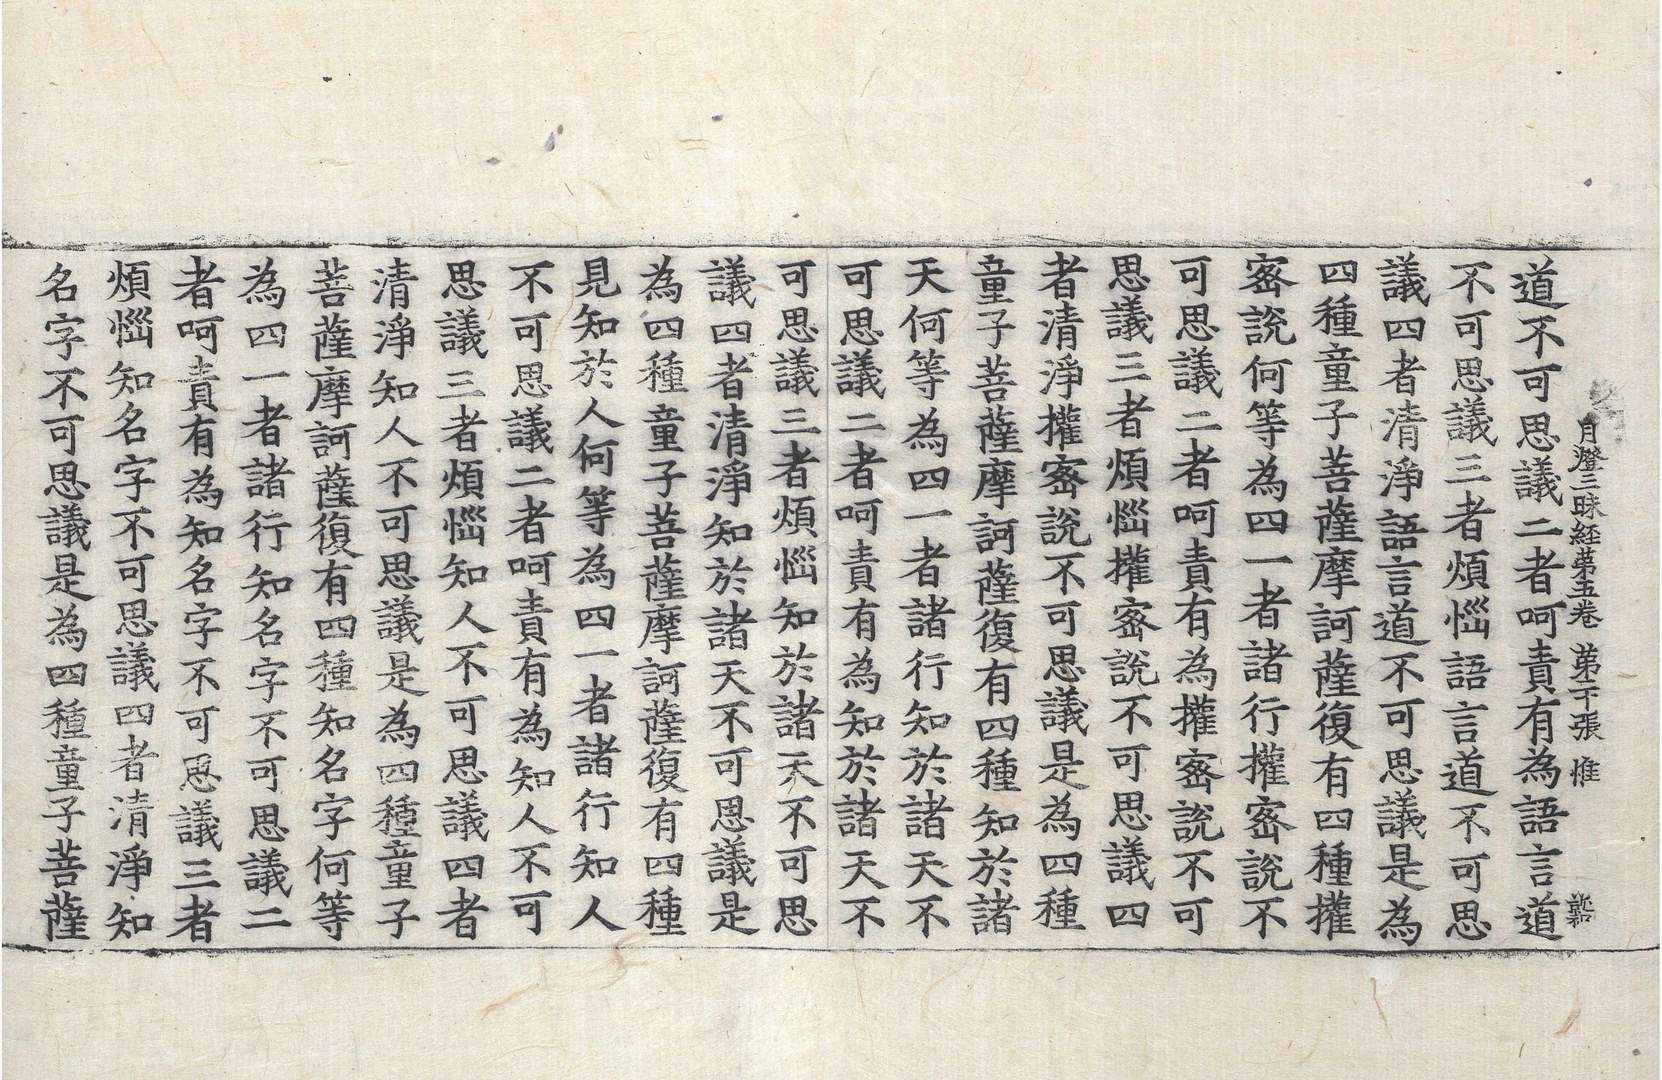 月燈三昧経苐五卷 苐二十張 惟
道不可思議二者呵責有為語言道
不可思議三者煩惱語言道不可思
議四者清淨語言道不可思議是為
四種童子菩薩摩訶薩復有四種攉
密說何等為四一者諸行攉密說不
可思議二者呵責有為攉密說不可
思議三者煩惱攉密說不可思議四
者清淨攉密說不可思議是為四種
童子菩薩摩訶薩復有四種知於諸
天何等為四一者諸行知於諸天不
可思議二者呵責有為知於諸天不
可思議三者煩惱知於諸天不可思
議四者清淨知於諸天不可思議是
為四種童子菩薩摩訶薩復有四種
見知於人何等為四一者諸行知人
不可思議二者呵責有為知人不可
思議三者煩惱知人不可思議四者
清淨知人不可思議是為四種童子
菩薩摩訶薩復有四種知名字何等
為四一者諸行知名字不可思議二
者呵責有為知名字不可思議三者
煩惱知名字不可思議四者清淨知
名字不可思議是為四種童子菩薩